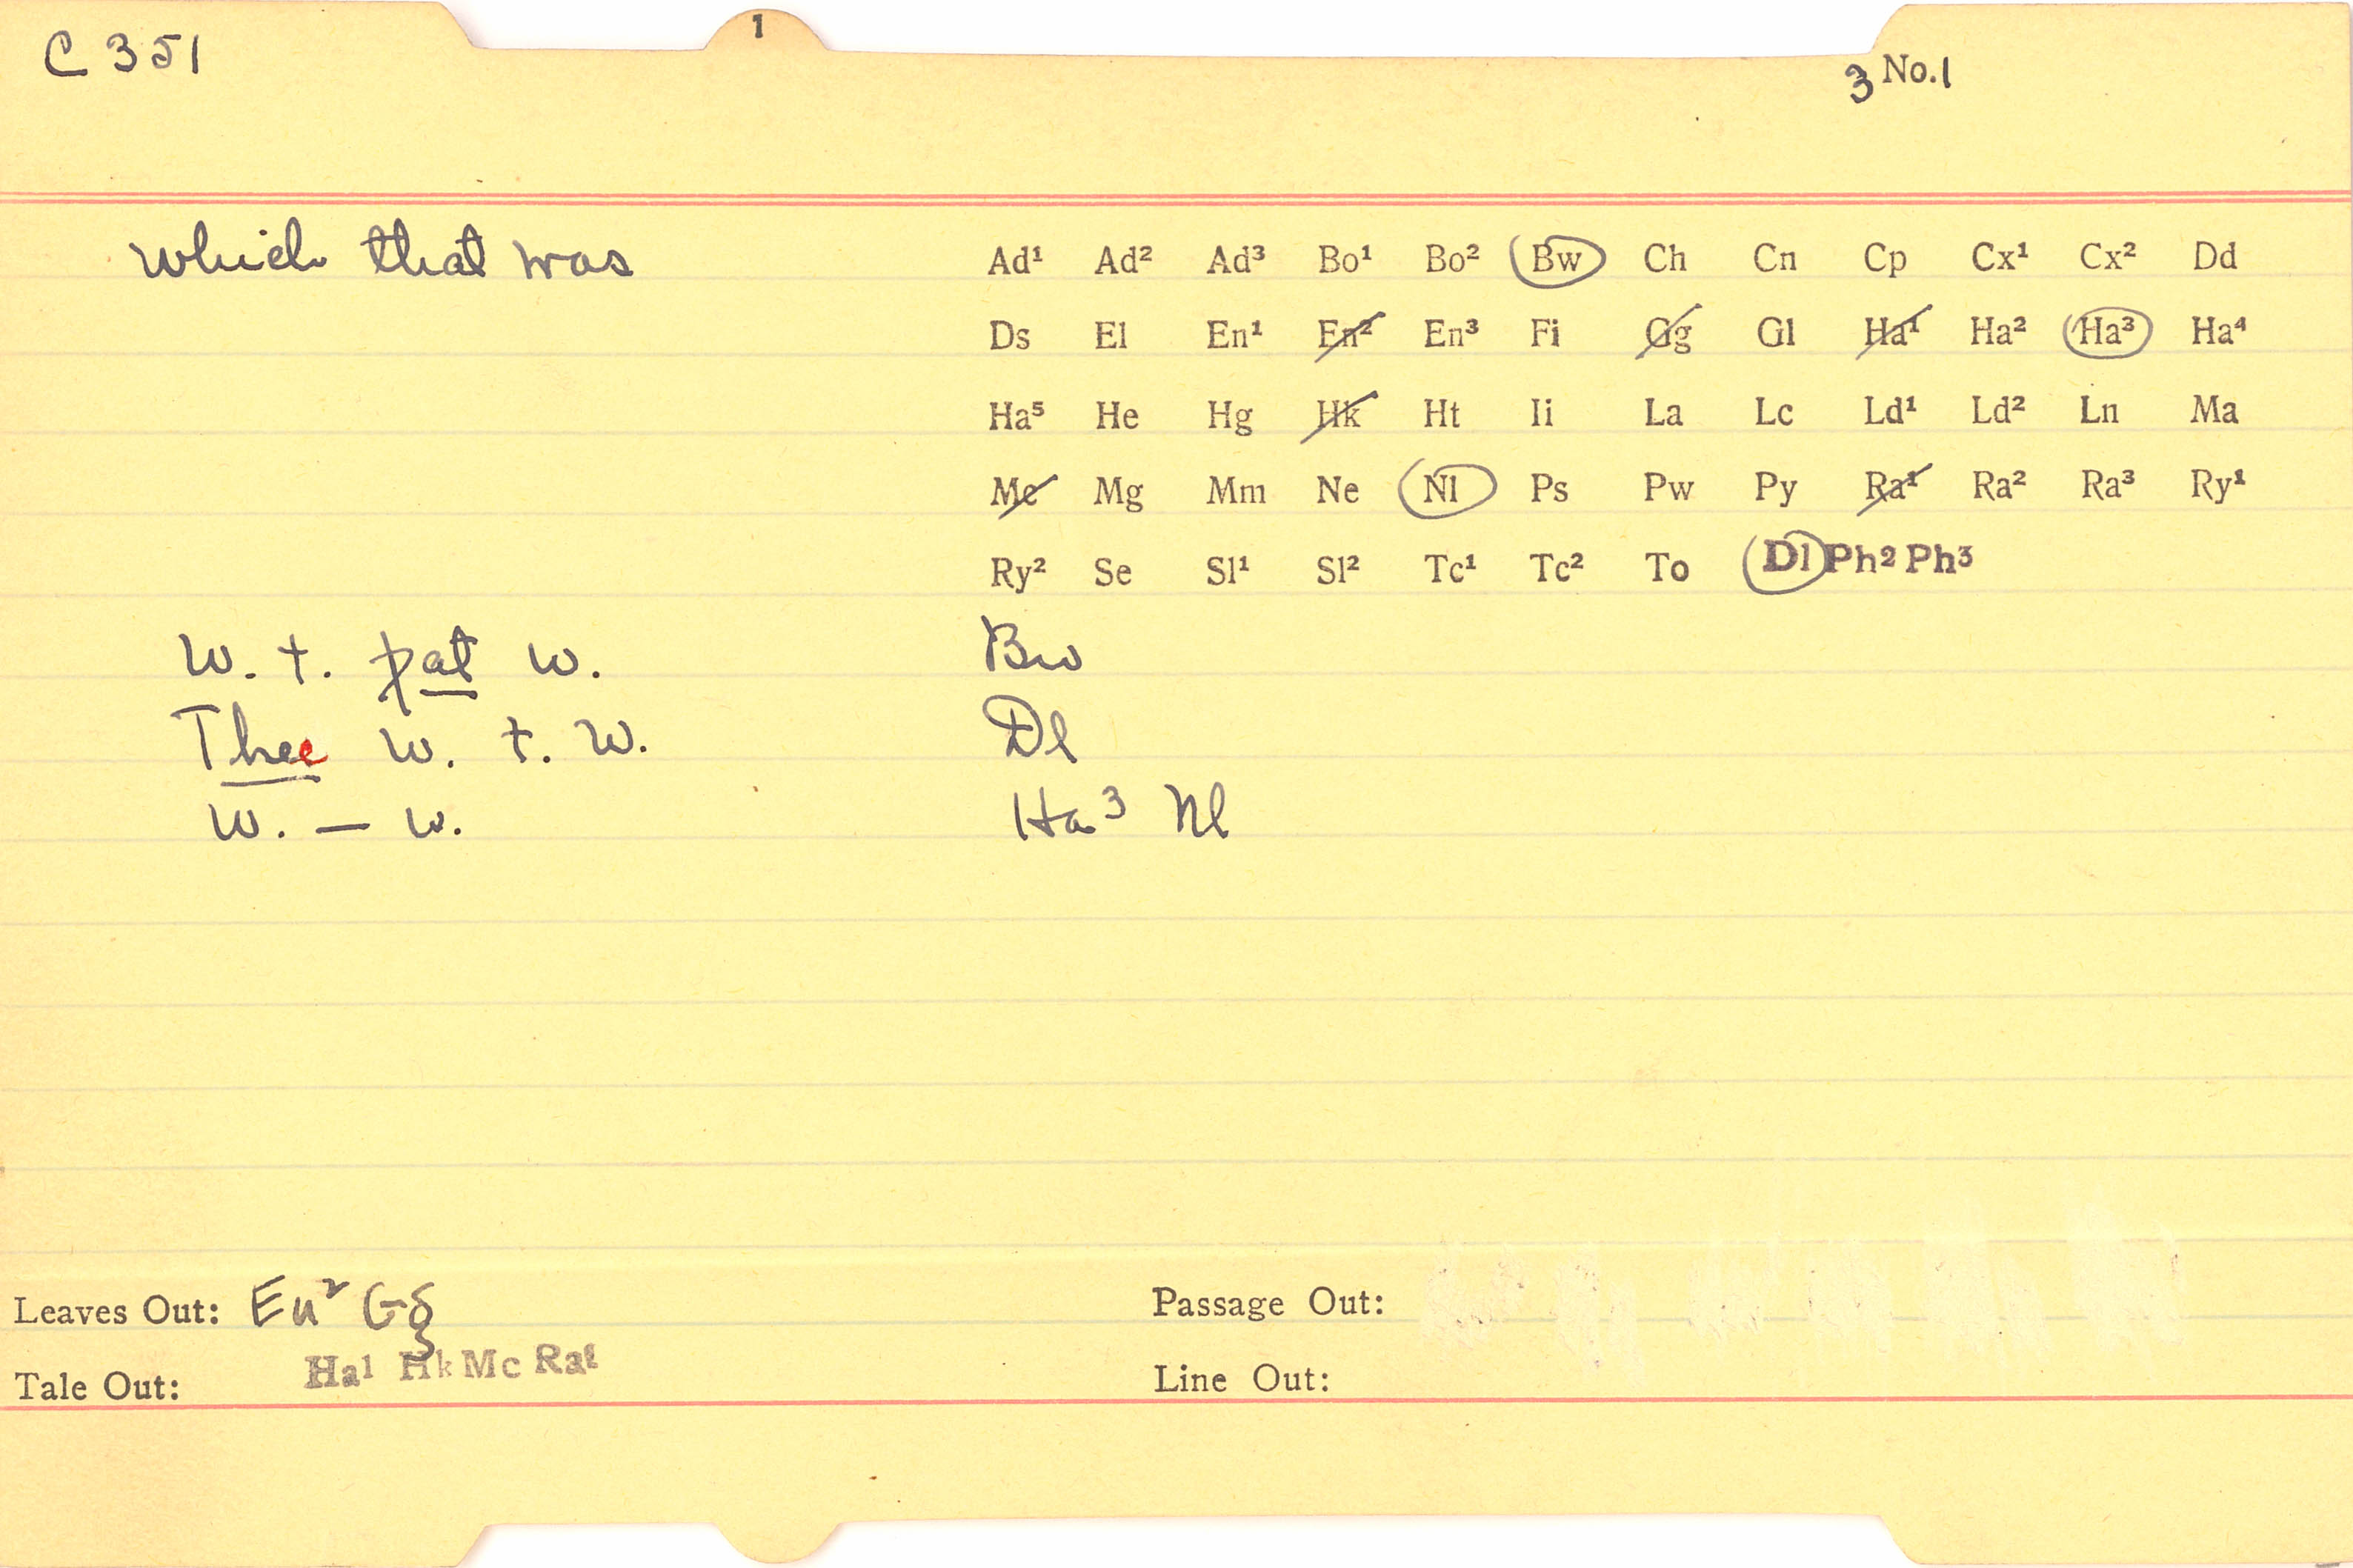 1
C 351
3 No.1
which that was
Ad¹ Ad² Ad³ Bo¹ Bo² Bw Ch Cn Cp Cx¹ Cx² Dd
Ds El En¹ En² En³ Fi Gg Gl Ha¹ Ha² Ha³ Ha⁴
Ha⁵ He Hg Hk Ht Ii La Lc Ld¹ Ld² Ln Ma
Mc Mg Mm Ne Nl Ps Pw Py Ra¹ Ra² Ra³ Ry¹
Ry² Se Sl¹ Sl² Tc¹ Tc² To Dl Ph² Ph³
w. t. þat w. Bw
Thee w. t. w. Dl
w. — w. Ha³ Nl
Leaves Out: En² Gg
Passage Out:
Ha¹ Hk Mc Ra¹
Tale Out:
Line Out: